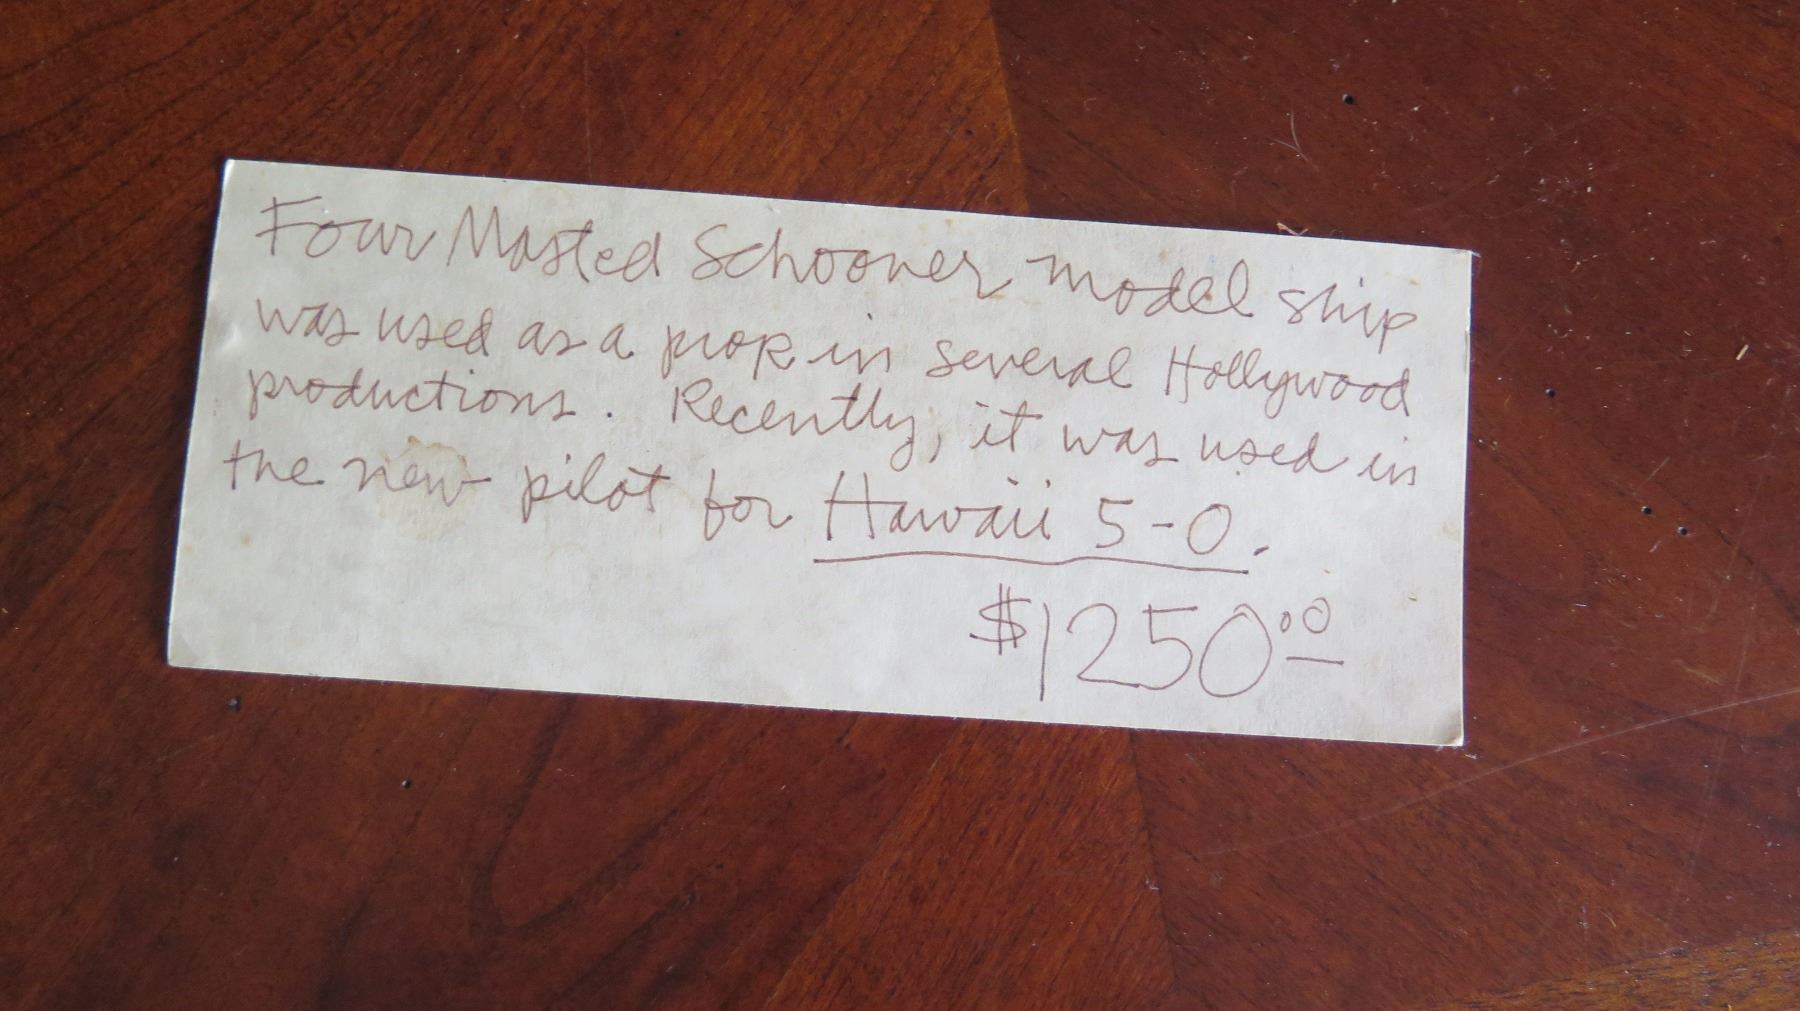 Four Masted Schooner model ship
was used as a prop in several Hollywood
productions. Recently, it was used in
the new pilot for Hawaii 5-0.
$1250.00